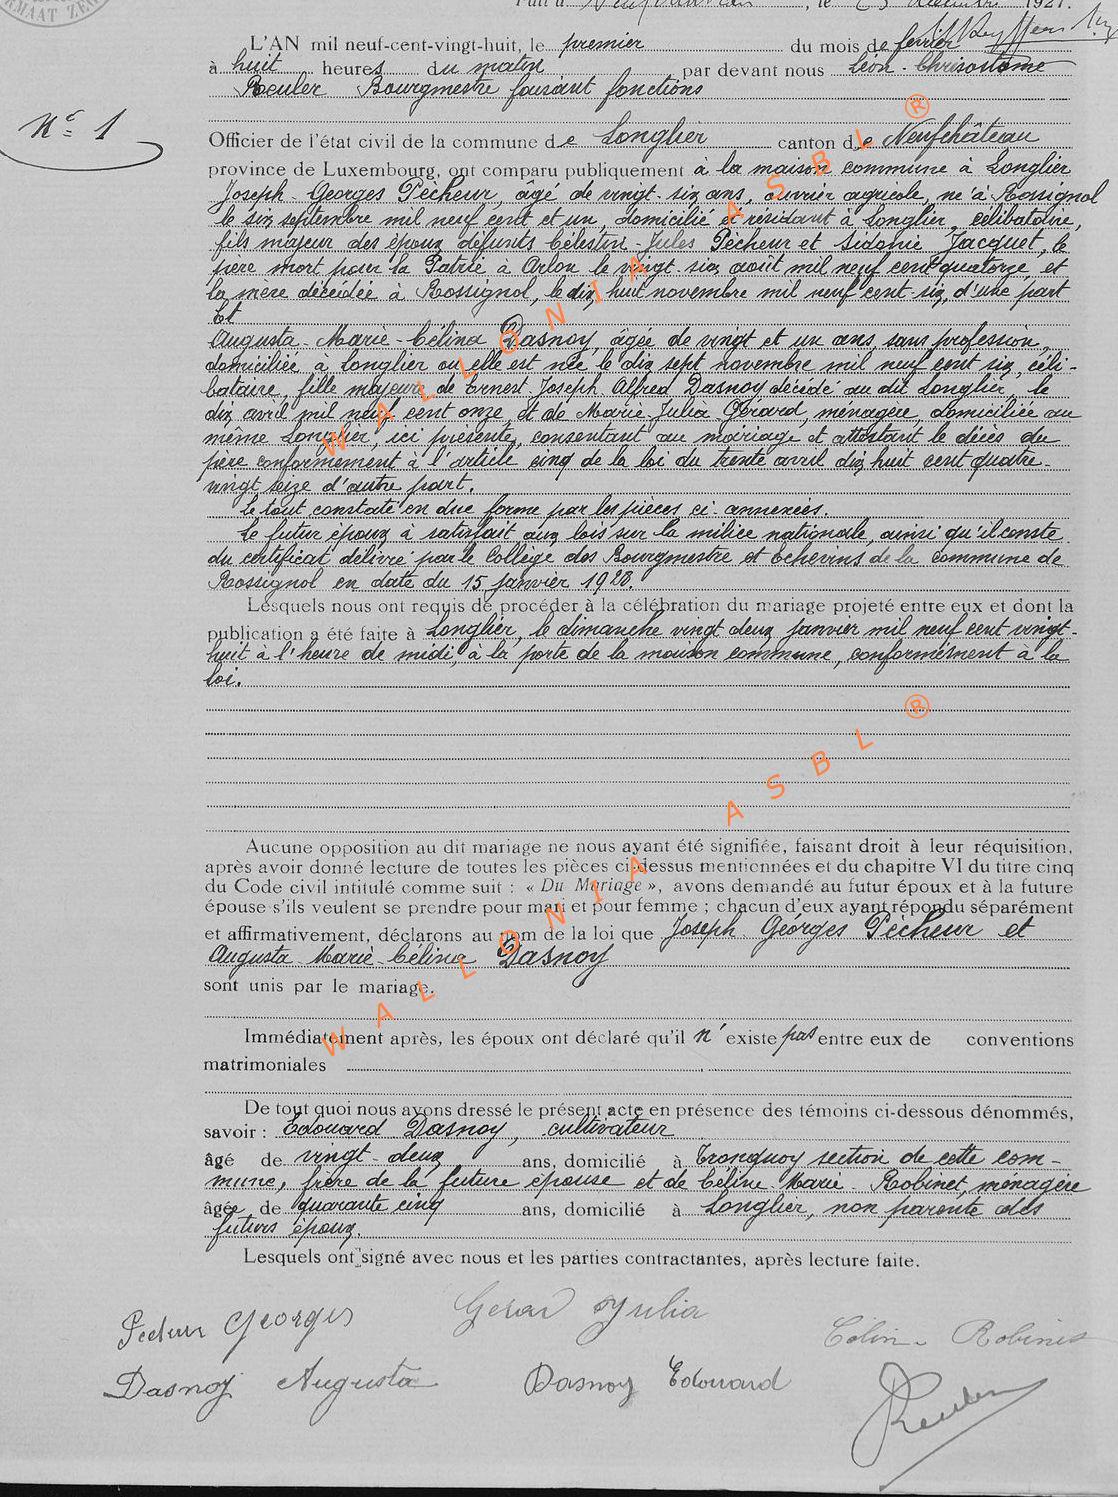 MAAT ZE
Fait à Neufchâteau, le 23 décembre 1927.
L'AN mil neuf-cent-vingt-huit, le premier du mois de février
à huit heures du matin par devant nous Léon-Chrisostome
Reuler Bourgmestre faisant fonctions
N° 1
Officier de l'état civil de la commune de Longlier canton de Neufchâteau
province de Luxembourg, ont comparu publiquement à la maison commune à Longlier
Joseph-Georges Pécheur, âgé de vingt-six ans, ouvrier agricole, né à Rossignol
le six septembre mil neuf cent et un, domicilié et résidant à Longlier, célibataire,
fils majeur des époux défunts Célestin-Jules Pécheur et Sidonie Jacquet, le
père mort pour la Patrie à Arlon le vingt-six août mil neuf cent quatorze, et
la mère décédée à Rossignol, le dix huit novembre mil neuf cent-six, d'une part
Et
Augusta-Marie-Célina Dasnoy, âgée de vingt et un ans, sans profession,
domiciliée à Longlier où elle est née le dix sept novembre mil neuf cent six, céli-
bataire, fille majeure de Ernest Joseph Alfred Dasnoy décédé au dit Longlier, le
dix avril mil neuf cent onze, et de Marie-Julia Gérard, ménagère, domiciliée au
même Longlier, ici présente, consentant au mariage et attestant le décès du
père conformément à l'article cinq de la loi du trente avril dix huit cent quatre-
vingt seize d'autre part.
Le tout constaté en due forme par les pièces ci-annexées.
Le futur époux à satisfait aux lois sur la milice nationale, ainsi qu'il conste
du certificat délivré par le Collège des Bourgmestre et Echevins de la commune de
Rossignol en date du 15 janvier 1928.
Lesquels nous ont requis de procéder à la célébration du mariage projeté entre eux et dont la
publication a été faite à Longlier, le dimanche vingt deux janvier mil neuf cent vingt-
huit à l'heure de midi, à la porte de la maison commune, conformément à la
loi.
Aucune opposition au dit mariage ne nous ayant été signifiée, faisant droit à leur réquisition,
après avoir donné lecture de toutes les pièces ci-dessus mentionnées et du chapitre VI du titre cinq
du Code civil intitulé comme suit : « Du Mariage », avons demandé au futur époux et à la future
épouse s'ils veulent se prendre pour mari et pour femme ; chacun d'eux ayant répondu séparément
et affirmativement, déclarons au nom de la loi que Joseph-Géorges Pécheur et
Augusta-Marie-Célina Dasnoy
sont unis par le mariage.
Immédiatement après, les époux ont déclaré qu'il n'existe pas entre eux de conventions
matrimoniales
De tout quoi nous avons dressé le présent acte en présence des témoins ci-dessous dénommés,
savoir : Edouard Dasnoy, cultivateur
âgé de vingt-deux ans, domicilié à Tronquoy section de cette com-
mune, frère de la future épouse et de Céline-Marie Robinet, ménagère
âgée de quarante cinq ans, domicilié à Longlier, non parente des
futurs époux.
Lesquels ont signé avec nous et les parties contractantes, après lecture faite.
Pecheur Georges
Gerard Julia
Célin- Robinet
Dasnoy Augusta
Dasnoy Edouard
Reuler
WALLONIA ASBL ®
WALLONIA ASBL ®